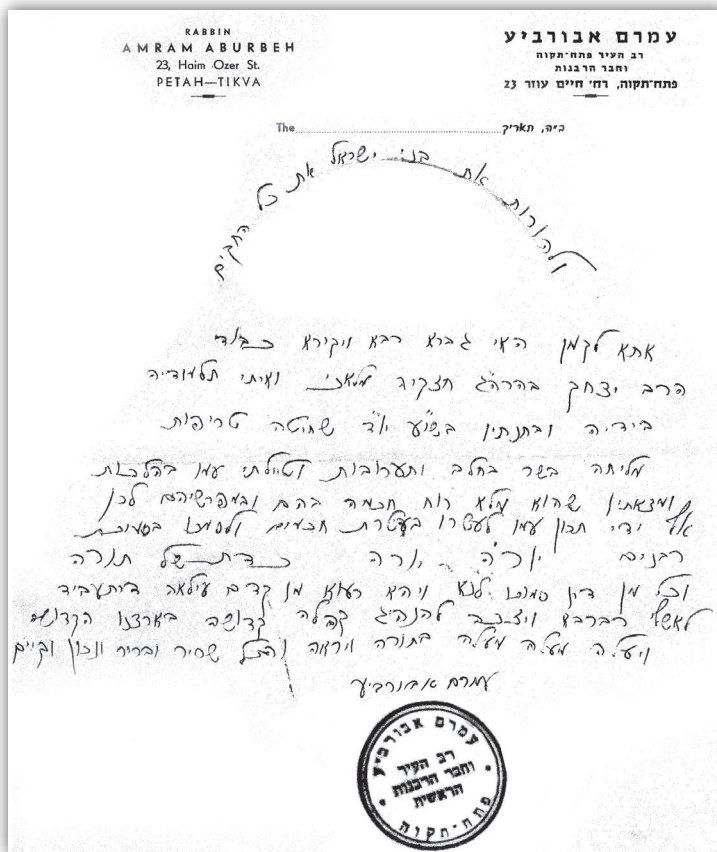 RABBIN
AMRAM ABURBEH
23, Haim Ozer St.
PETAH—TIKVA
עמרם אבורביע
רב העיר פתח־תקוה
וחבר הרבנות
פתח־תקוה, רח׳ חיים עוזר 23
The
ב״ה, תאריך
ולהורות את בני ישראל את כל החקים
אתא לקמן האי גברא רבא ויקירא כבוד
הרב יצחק בהרה״ג חצקיר ואיתי תלמודיה
בידיה ובחנתיו בשו״ע יו״ד שחיטה טריפות
מליחה בשר בחלב ותערובות וטיילתי עמו בהלכות
ומצאתיו שהוא מלא רוח חכמה בהם ובמפרשיהם לכן
אף ידי תכון עמו לעטרו בעטרת חכמים ולסמכו בסמיכת
רבנים יורה יורה כדת של תורה
וכל מן דין סמוכו לנא ויהא רעוא מן קדם עילאה דיתעביד
לאשלי רברבא ויזכה להנהיג קהלה קדושה בארצנו הקדושה
ויעלה מעלה מעלה בתורה ויראה והכל שריר ובריר ונכון וקיים
עמרם אבורביע
עמרם אבורביע
רב העיר
וחבר הרבנות
הראשית
פתח־תקוה